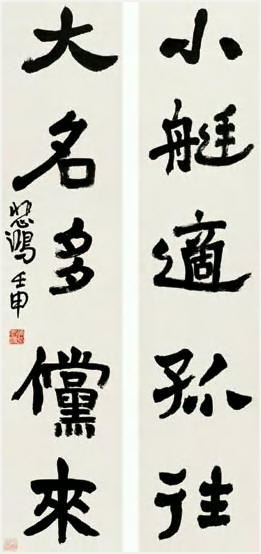 小艇適孤往
大名多儻來
悲鴻 壬申